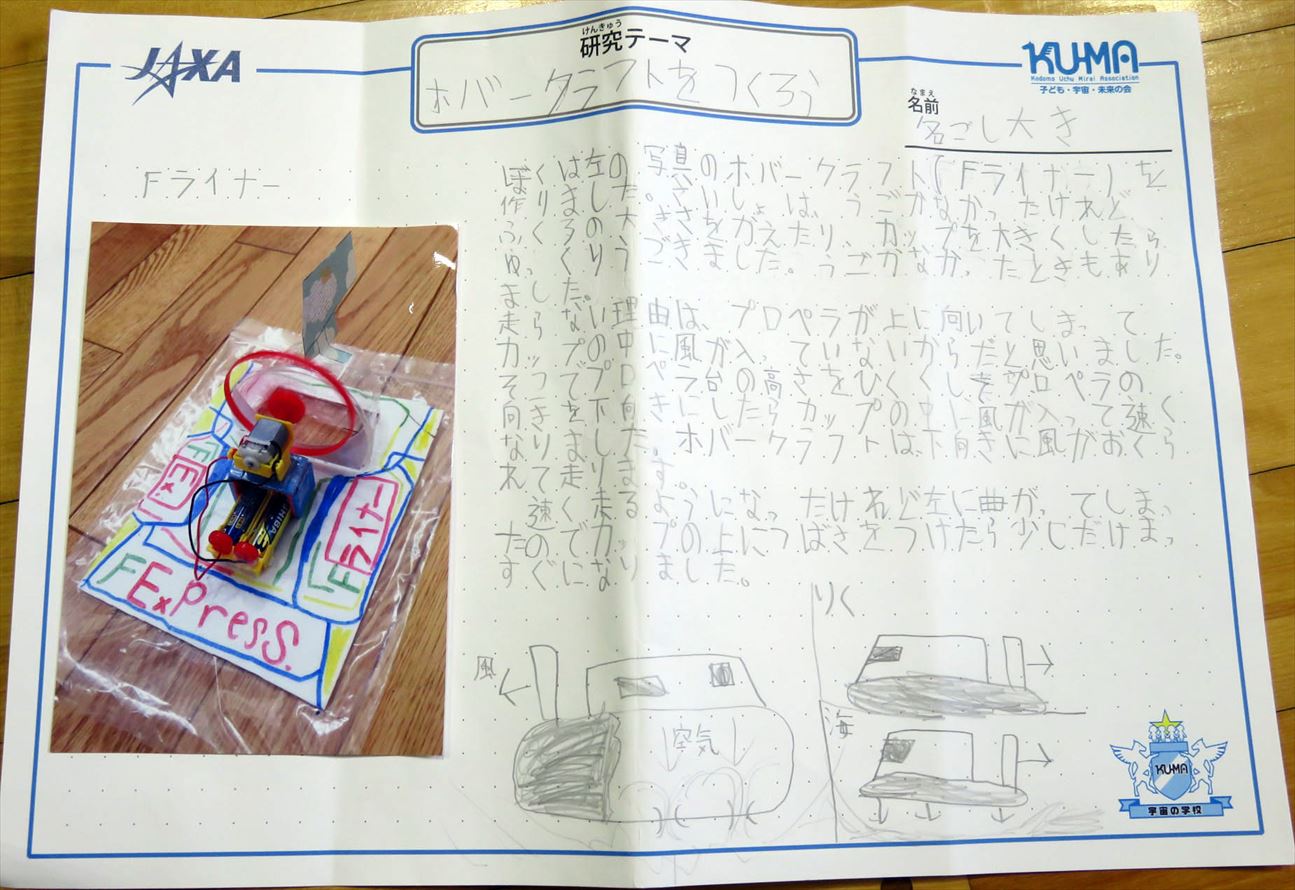 JAXA
けんきゅう
研究テーマ
ホバークラフトをつくろう
KU-MA
Kodomo Uchu Mirai Association
子ども・宇宙・未来の会
なまえ
名前
名ごし大き
Fライナー
ぼくは左の写真のホバークラフト(Fライナー)を
作りました。さいしょは、うごかなかったけれど
ふくろの大きさをかえたり、カップを大きくしたら
ゆっくりうごきました。うごかなかったときもあり
ました。
走らない理由は、プロペラが上に向いてしまって
カップの中に風が入っていないからだと思いました。
そこでプロペラ台の高さをひくくしをプロペラの
向きを下向きにしたらカップの中に風が入って速く
なりました。ホバークラフトは下向きに風がおくら
れて走ります。
速く走るようになったけれど左に曲がってしまっ
たのでカップの上につばさをつけたら少しだけまっ
すぐになりました。
F Ex.
Fライナー
F ExPresS.
風
空気
りく
海
KU-MA
宇宙の学校